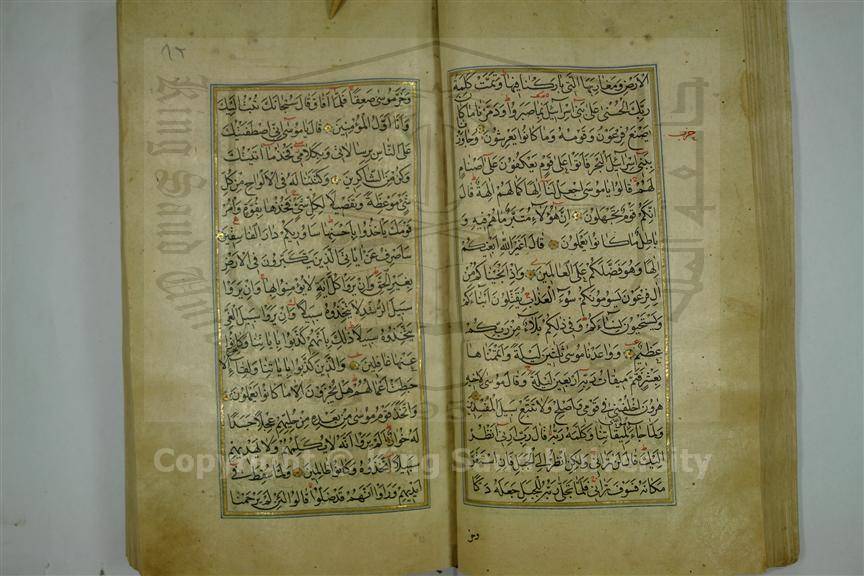 الارض ومغاربها التى باركنا فيها وتمت كلمة
ربك الحسنى على بنى اسرائيل بما صبروا ودمرنا ما كان
يصنع فرعون وقومه وما كانوا يعرشون وجاوزنا
ببنى اسرائيل البحر فاتوا على قوم يعكفون على اصنام
لهم قالوا ياموسى اجعل لنا الها كما لهم الهة قال
انكم قوم تجهلون ان هؤلاء متبر ما هم فيه و
باطل ما كانوا يعملون قال اغير الله ابغيكم
الها وهو فضلكم على العالمين واذ انجيناكم من
ال فرعون يسومونكم سوء العذاب يقتلون ابناءكم
ويستحيون نساءكم وفى ذلكم بلاء من ربكم
عظيم وواعدنا موسى ثلثين ليلة واتممناها
بعشر فتم ميقات ربه اربعين ليلة وقال موسى لاخيه
هرون اخلفنى فى قومى واصلح ولا تتبع سبيل المفسدين
ولما جاء موسى لميقاتنا وكلمه ربه قال رب ارنى انظر
اليك قال لن ترانى ولكن انظر الى الجبل فان استقر
مكانه فسوف ترانى فلما تجلى ربه للجبل جعله دكا
وخر
حزب
٩٢
وخر موسى صعقا فلما افاق قال سبحانك تبت اليك
وانا اول المؤمنين قال ياموسى انى اصطفيتك
على الناس برسالاتى وبكلامى فخذ ما اتيتك
وكن من الشاكرين وكتبنا له فى الالواح من كل
شئ موعظة وتفصيلا لكل شئ فخذها بقوة وأمر
قومك ياخذوا باحسنها ساوريكم دار الفاسقين
ساصرف عن اياتى الذين يتكبرون فى الارض
بغير الحق وان يروا كل اية لا يؤمنوا بها وان يروا
سبيل الرشد لا يتخذوه سبيلا وان يروا سبيل الغى
يتخذوه سبيلا ذلك بانهم كذبوا باياتنا وكانوا
عنها غافلين والذين كذبوا باياتنا ولقاء الاخرة
حبطت اعمالهم هل يجزون الا ما كانوا يعملون
واتخذ قوم موسى من بعده من حليهم عجلا جسدا
له خوار الم يروا انه لا يكلمهم ولا يهديهم
سبيلا اتخذوه وكانوا ظالمين ولما سقط فى
ايديهم وراوا انهم قد ضلوا قالوا لئن لم يرحمنا
Copyright © King Saud University
King Saud University
1957